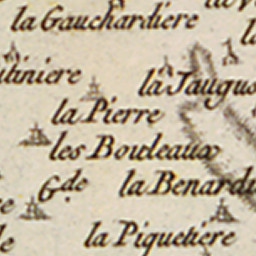 la Gauchardiere
la Jaugus
la Pierre
les Bouleaux
Gde. la Benardi
la Piquetiere